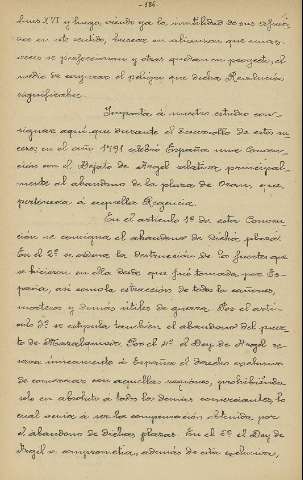 - 186
Luis XVI y luego, viendo ya la inutilidad de sus esfuer-
zos en este sentido, buscar en alianzas que unas
veces se perfeccionan y otras quedan en proyecto, el
medio de conjurar el peligro que dicha Revolución
significaba.
Importa á nuestro estudio con-
signar aquí que durante el desarrollo de estos su-
cesos en el año 1791 celebró España una Conven-
ción con el Deyato de Argel relativa, principal-
mente al abandono de la plaza de Oran, que
pertenecía á aquella Regencia.
En el artículo 1º de esta Conven-
ción se consigna el abandono de dicha plaza.
En el 2º se ordena la destrucción de los fuertes que
se hicieron en ella desde que fué tomada por Es-
paña, así como la extracción de todos los cañones,
morteros y demás útiles de guerra. Por el artí-
culo 3º se estipula también el abandono del puer-
to de Mazalquivir. Por el 4º el Dey de Argel re-
serva únicamente á España el derecho exclusivo
de comerciar con aquellas regiones, prohibiéndo-
solo en absoluto a todos los demás comerciantes lo
cual venía á ser la compensación obtenida por
el abandono de dichas plazas. En el 5º el Dey de
Argel se comprometía, además de esta exclusiva,